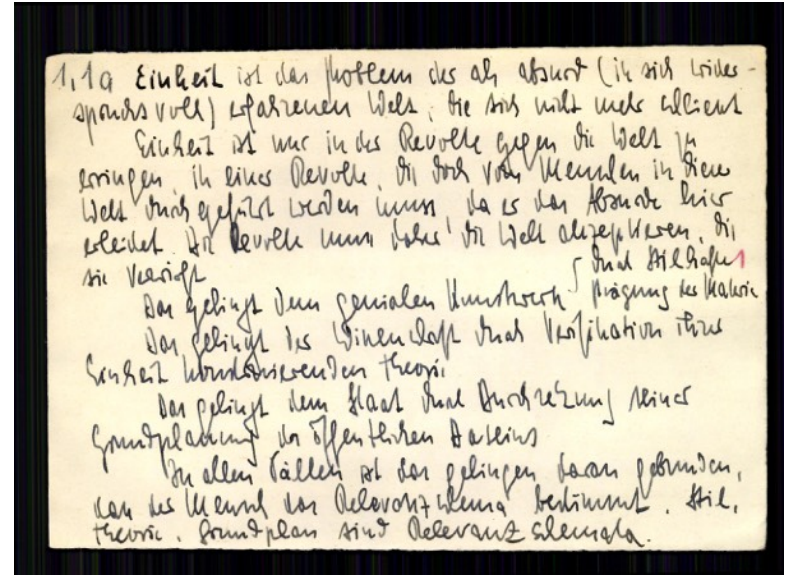 1,1a Einheit ist das Problem der als absurd (in sich wider-
spruchsvoll) erfahrenen Welt, die sich nicht mehr schliesst
Einheit ist nur in der Revolte gegen die Welt zu
erringen, in einer Revolte, die doch vom Menschen in dieser
Welt durchgeführt werden muss, da er das Absurde hier
erleidet. Die Revolte muss daher die Welt akzeptieren, die
sie verwirft
durch stilhafte 1
Das gelingt dem genialen Kunstwerk Prägung der Materie
Das gelingt der Wissenschaft durch Verifikation ihrer
Einheit konstruierenden Theorie
Das gelingt dem Staat durch Durchsetzung seiner
Grundplanung des öffentlichen Daseins
In allen Fällen ist das gelingen daran gebunden,
dass der Mensch das Relevanzschema bestimmt. Stil,
Theorie, Grundplan sind Relevanzschemata.